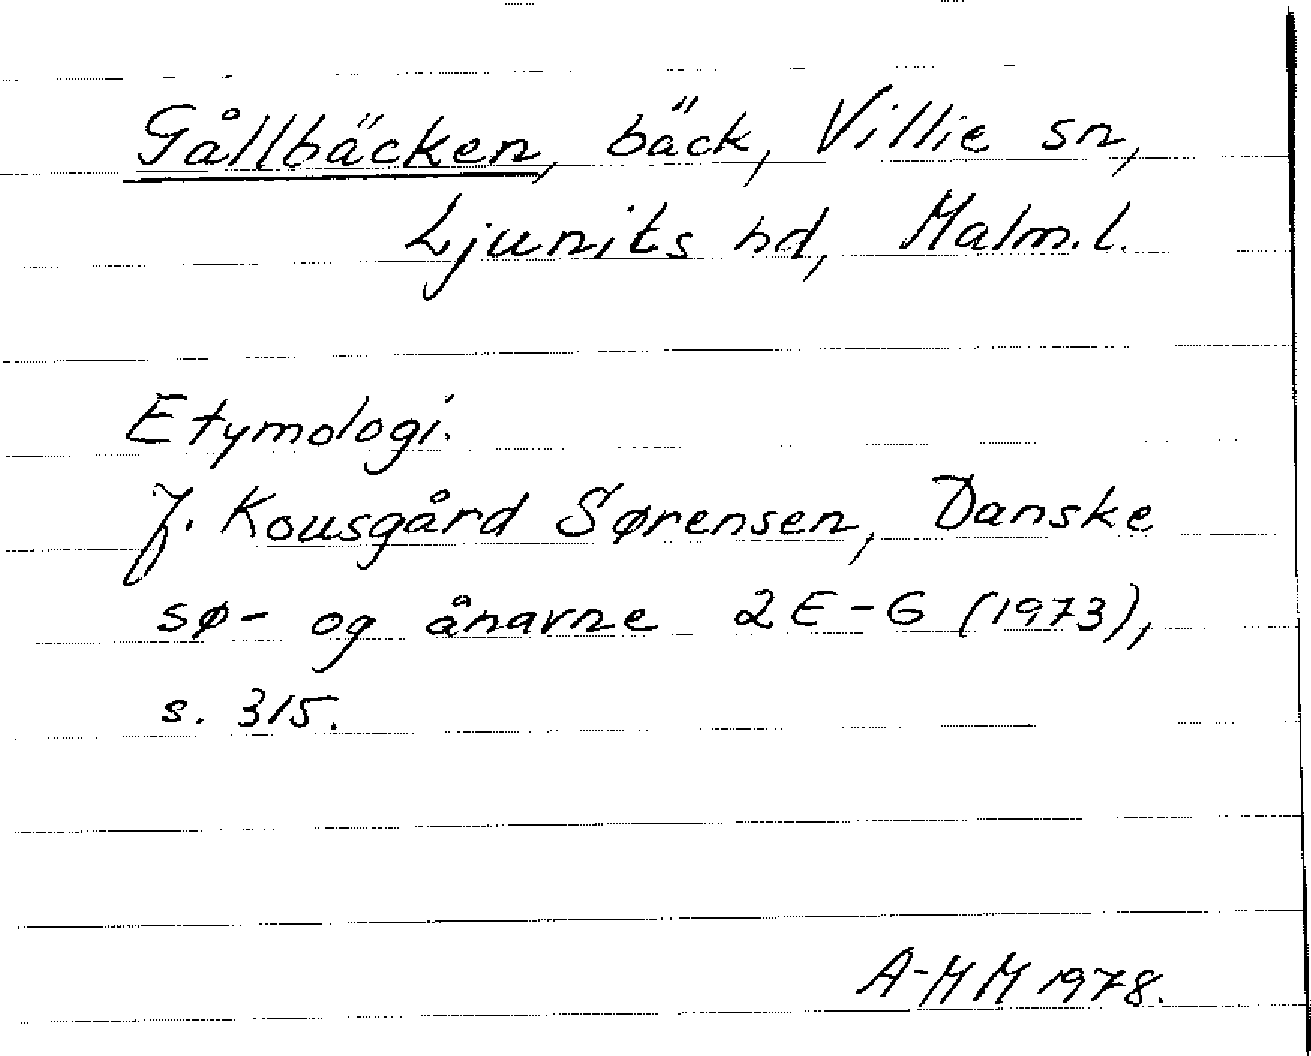 Gållbäcken, bäck, Villie sn,
Ljunits hd, Malm.l.
Etymologi.
J. Kousgård Sørensen, Danske
sø- og ånavne 2 E-G (1973),
s. 315.
A-MM 1978.